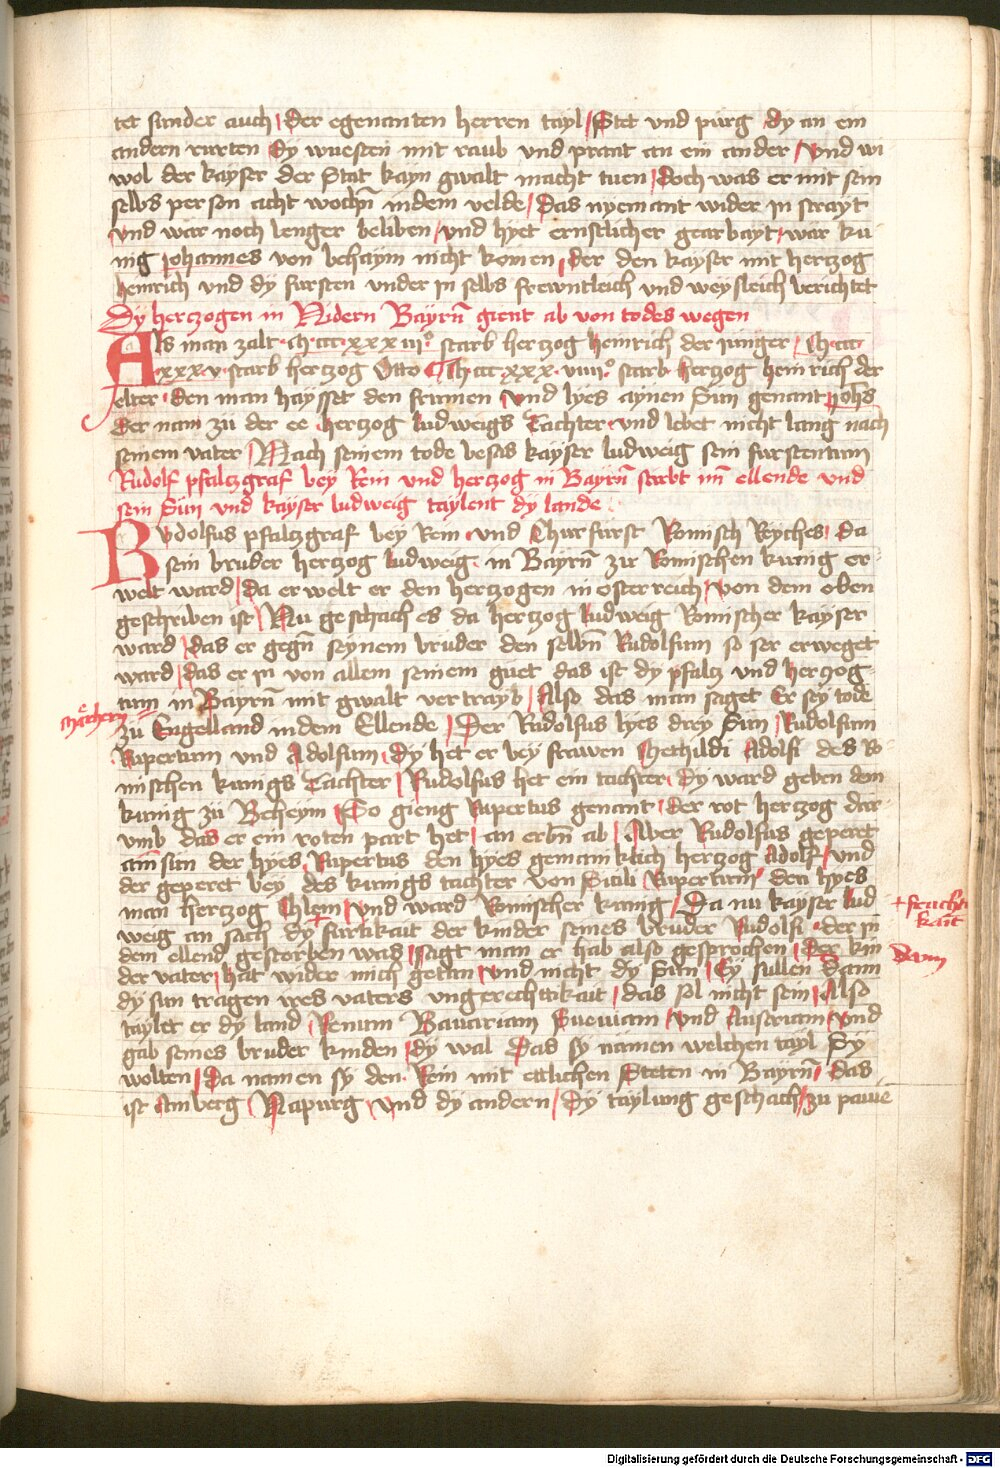 tet sunder auch der egenanten herren tayl Stet vnd purg dy an ein
andern rurten Dy wuesten mit raub vnd prant an ein ander vnd wi
wol der kayser der Stat kayn gwalt macht tuen doch was er mit sein
selbs person acht wochn̄ in dem velde Das nyemant wider in strayt
vnd war noch lenger beliben vnd hyet ernstlicher gearbayt war ku
nig Johannes von behaym nicht komen der den kayser mit hertzog
heinrich vnd dy fursten vnder in selbs frewntleich vnd weysleich verichtet
Dy hertzogen in Nidern Bayrn̄ gient ab von todes wegen
Als man zalt xxxiii° starb hertzog heinrich der iunger
xxxv starb hertzog Otto xxxviiii° starb hertzog heinrich der
elter den man haysset den frumen vnd lyes aynen Sun genant Johs
Der nam zu der ee hertzog ludweigs Tachter vnd lebet nicht lang nach
seinem vater Nach seinem tode besas kayser ludweig sein furstentum
Rudolf pfaltzgraf bey Rein vnd hertzog in Bayrn̄ starbt im ellende vnd
sein Sun vnd kayser ludweig taylent dy lande
Rudolfus pfaltzgraf bey Rein vnd Churfurst Romisch Reyches Da
sein bruder hertzog ludweig in Bayrn̄ zu Romischen kunig er
welt ward da erwelt er den hertzogen in osterreich von dem oben
geschriben ist Nu geschach es da hertzog ludweig Romischer kayser
ward das er gegn̄ seynem bruder den selbn̄ Rudolfum so ser erweget
ward das er in von allem seinem guet das ist dy pfaltz vnd hertzog
tum in Bayrn̄ mit gwalt vertrayb Also das man saget Er sey tode
zu Engelland in dem Ellende Der Rudolfus lyes drey Sun Rudolfum
Rupertum vnd Adolfum Dy het er bey frawen Mechthildi Adolfi des Ro
mischen kunigs Tachter Rudolfus het ein tachter Dy ward geben dem
kunig zu Beheym So gieng Rupertus genant der rot hertzog dar
vmb das er ein roten part het an erbn̄ ab Aber Rudolfus geperet
ain sun der hyes Rupertus den hyes gemainklich hertzog Adolf vnd
der geperet bey des kunigs tachter von Sicili Rupertum den hyes
man hertzog Chlem vnd ward Romischer kunig Da nu kayser lud
weig an sach dy furtikait der kinder seines bruder Rudolfi der in
dem ellend gestorben was sagt man er hab also gesprochen Der kin
der vater hat wider mich getan vnd nicht dy Sun Ey sullen dann
dy sun tragen ires vaters vngerechtikait das sol nicht sein Also
taylet er dy land Renum Bauariam Sueuiam vnd Austriam vnd
gab seines bruder kinden dy wal Das sy namen welchen tayl Sy
wolten Da namen sy den Rein mit ettlichen Steten in Bayrn̄ Das
ist Amberg Napurg vnd dy andern Dy taylung geschach zu pauie